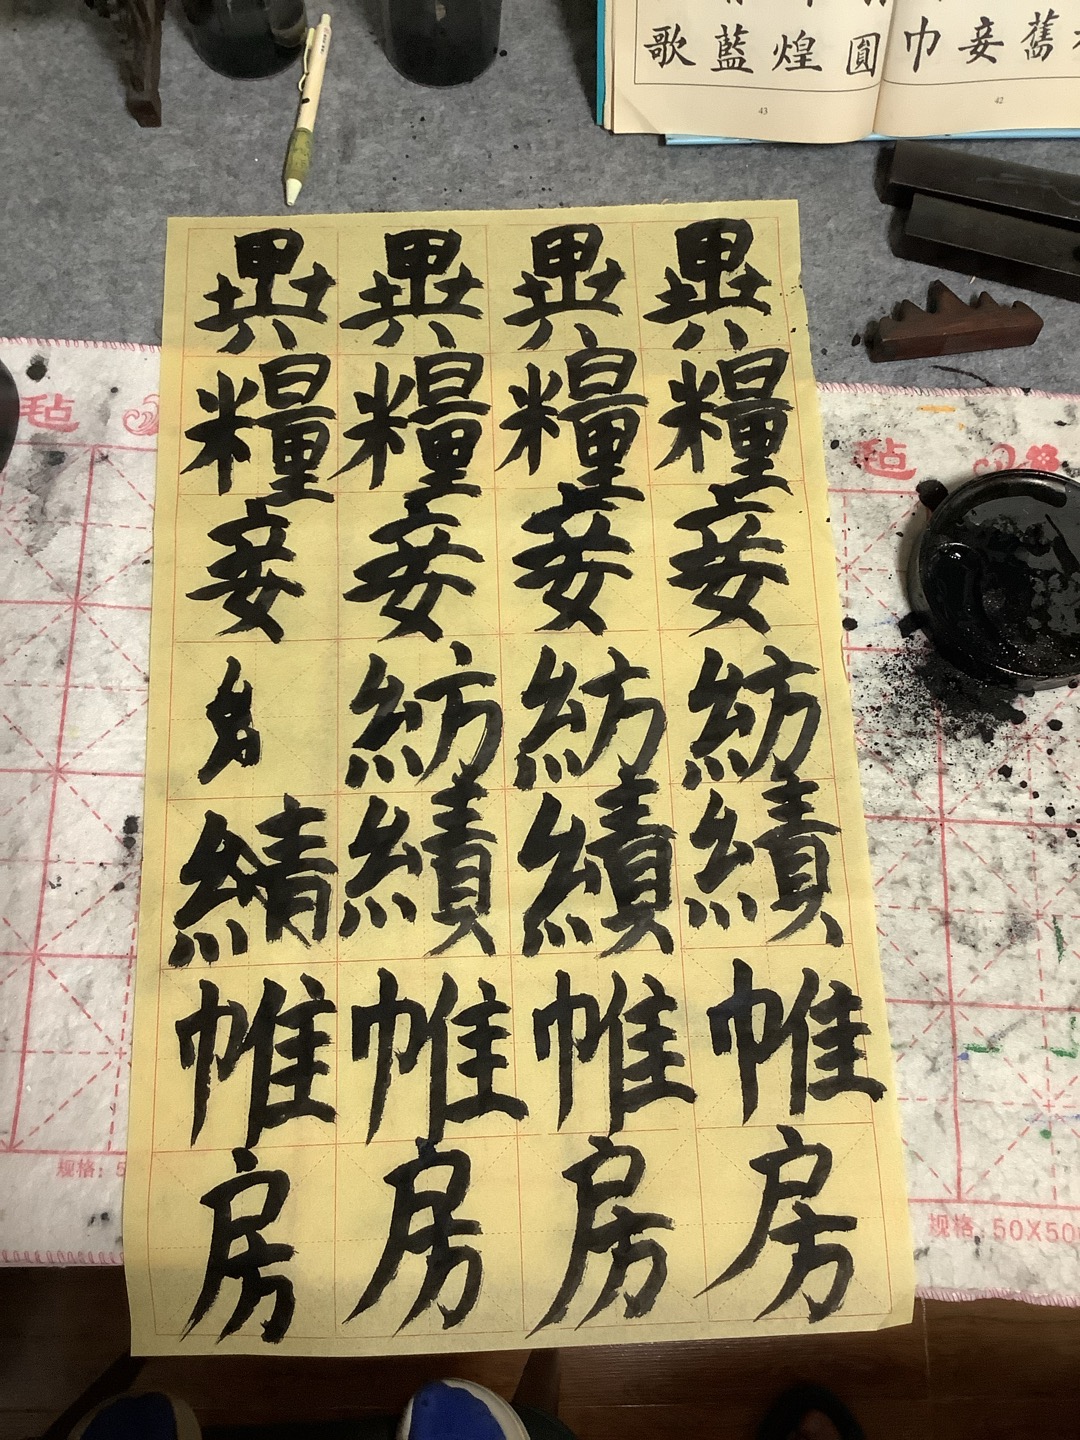 歌藍煌圓 巾妾舊
43 42
異異異異
糧糧糧糧
妾妾妾妾
紡紡紡
績績績績
帷帷帷帷
房房房房
毡 毡
规格: 5
规格: 50X50